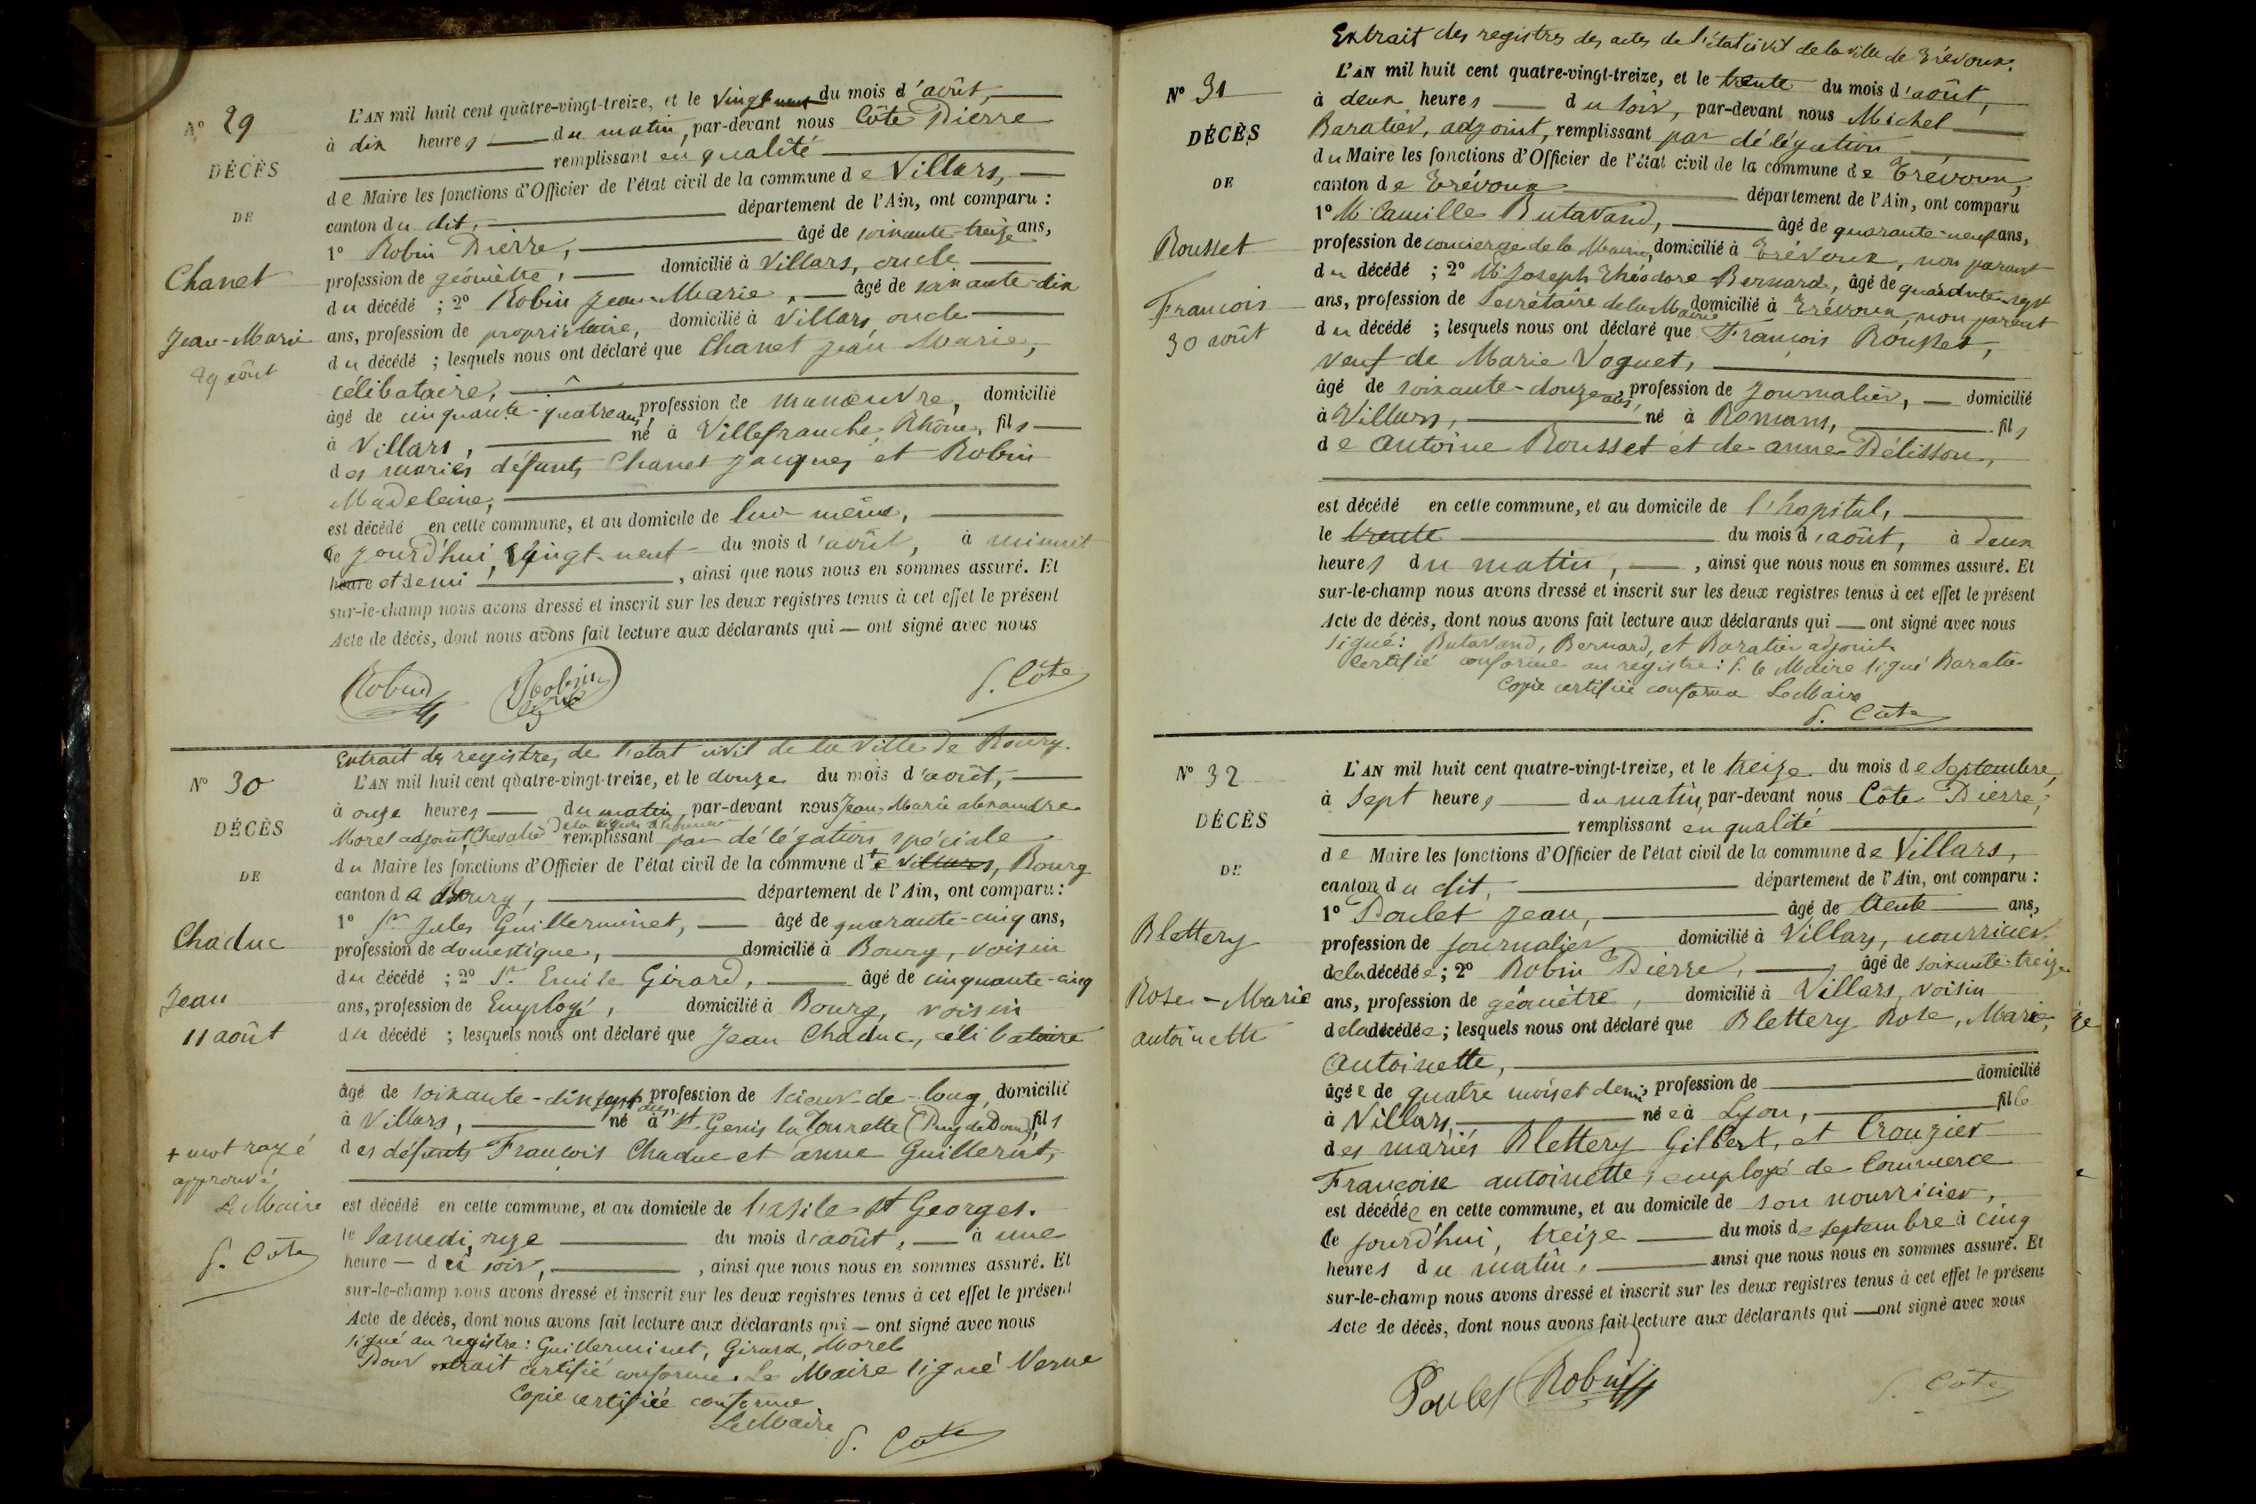 N° 29
DÉCÈS
DE
Chanet
Jean-Marie
29 août
L'AN mil huit cent quatre-vingt-treize, et le vingt neuf du mois d'août,
à dix heures du matin, par-devant nous Côte Pierre
remplissant en qualité
de Maire les fonctions d'Officier de l'état civil de la commune de Villars,
canton du dit, département de l'Ain, ont comparu :
1° Robin Pierre, âgé de soixante-treize ans,
profession de géomètre, domicilié à Villars, oncle
du décédé ; 2° Robin Jean-Marie, âgé de soixante-dix
ans, profession de propriétaire, domicilié à Villars, oncle
du décédé ; lesquels nous ont déclaré que Chanet Jean Marie,
célibataire,
âgé de cinquante-quatre ans, profession de manœuvre, domicilié
à Villars, né à Villefranche, Rhône, fils
des mariés défunts Chanet Jacques et Robin
Madeleine,
est décédé en cette commune, et au domicile de lui même,
ce jourd'hui, vingt-neuf du mois d'août, à minuit
heure et demi, ainsi que nous nous en sommes assuré. Et
sur-le-champ nous avons dressé et inscrit sur les deux registres tenus à cet effet le présent
Acte de décès, dont nous avons fait lecture aux déclarants qui — ont signé avec nous
Robin Robin P. Côte
N° 30
DÉCÈS
DE
Chaduc
Jean
11 août
+ mot rayé
approuvé
Le Maire
P. Côte
Extrait des registres de l'état civil de la Ville de Bourg.
L'AN mil huit cent quatre-vingt-treize, et le douze du mois d'août,
à onze heures du matin, par-devant nous Jean-Marie alexandre
Morel adjoint, Chevalier de la légion d'honneur remplissant par délégation spéciale
du Maire les fonctions d'Officier de l'état civil de la commune d+e Villars, Bourg
canton de Bourg, département de l'Ain, ont comparu :
1° Sr Jules Guillerminet, âgé de quarante-cinq ans,
profession de domestique, domicilié à Bourg, voisin
du décédé ; 2° Sr Emile Girard, âgé de cinquante-cinq
ans, profession de Employé, domicilié à Bourg, voisin
du décédé ; lesquels nous ont déclaré que Jean Chaduc, célibataire
âgé de soixante-dix sept ans, profession de scieur-de-long, domicilié
à Villars, né à St. Genis la Tourette (Puy de Dome), fils
des défunts François Chaduc et anne Guillerut,
est décédé en cette commune, et au domicile de l'asile St Georges.
le samedi, onze du mois d'août, à une
heure — du soir, ainsi que nous nous en sommes assuré. Et
sur-le-champ nous avons dressé et inscrit sur les deux registres tenus à cet effet le présent
Acte de décès, dont nous avons fait lecture aux déclarants qui — ont signé avec nous
signé au registre : Guillerminet, Girard, Morel
Pour extrait certifié conforme. Le Maire signé Verne
Copie certifiée conforme
Le Maire P. Côte
Extrait des registres des actes de l'état civil de la ville de Trévoux.
N° 31
DÉCÈS
DE
Rousset
François
30 août
L'AN mil huit cent quatre-vingt-treize, et le trente du mois d'août,
à deux heures du soir, par-devant nous Michel
Baratier, adjoint, remplissant par délégation
du Maire les fonctions d'Officier de l'état civil de la commune de Trévoux,
canton de Trévoux département de l'Ain, ont comparu
1° M. Camille Butavand, âgé de quarante-neuf ans,
profession de concierge de la Mairie, domicilié à Trévoux, non parent
du décédé ; 2° M. Joseph Théodore Bernard, âgé de quarante-sept
ans, profession de Secrétaire de la Mairie domicilié à Trévoux, non parent
du décédé ; lesquels nous ont déclaré que François Rousset,
veuf de Marie Voguet,
âgé de soixante-douze ans, profession de journalier, domicilié
à Villars, né à Romans, fils
de Antoine Rousset et de anne Pélisson,
est décédé en cette commune, et au domicile de l'hopital,
le trente du mois d'août, à deux
heures du matin, ainsi que nous nous en sommes assuré. Et
sur-le-champ nous avons dressé et inscrit sur les deux registres tenus à cet effet le présent
Acte de décès, dont nous avons fait lecture aux déclarants qui — ont signé avec nous
signé : Butavand, Bernard, et Baratier adjoint
Certifié conforme au registre : P. le Maire signé Baratier
Copie certifiée conforme Le Maire
P. Côte
N° 32
DÉCÈS
DE
Blettery
Rose-Marie
antoinette
L'AN mil huit cent quatre-vingt-treize, et le treize du mois de septembre,
à sept heures du matin, par-devant nous Côte Pierre,
remplissant en qualité
de Maire les fonctions d'Officier de l'état civil de la commune de Villars,
canton du dit, département de l'Ain, ont comparu :
1° Poulet Jean, âgé de trente ans,
profession de journalier, domicilié à Villars, nourricier
de la décédée ; 2° Robin Pierre, âgé de soixante-treize
ans, profession de géomètre, domicilié à Villars, voisin
de la décédée ; lesquels nous ont déclaré que Blettery Rose, Marie,
Antoinette,
âgée de quatre mois et demi, profession de domicilié
à Villars, née à Lyon, fille
des mariés Blettery Gilbert, et Crouzier
Françoise antoinette, employé de Commerce
est décédée en cette commune, et au domicile de son nourricier,
ce jourd'hui, treize du mois de septembre à cinq
heures du matin, ainsi que nous nous en sommes assuré. Et
sur-le-champ nous avons dressé et inscrit sur les deux registres tenus à cet effet le présent
Acte de décès, dont nous avons fait lecture aux déclarants qui — ont signé avec nous
Poulet Robin P. Côte